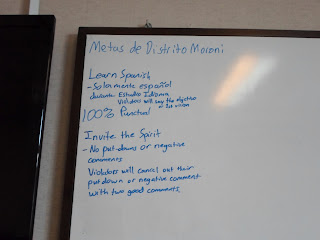 Metas de Distrito Moroni
Learn Spanish
- Solamente español
durante Estudio Idioma
Violators will say the objective
or 1st vision
100% Punctual
Invite the Spirit
- No put downs or negative
comments
Violators will cancel out their
putdown or negative comment
with two good comments.